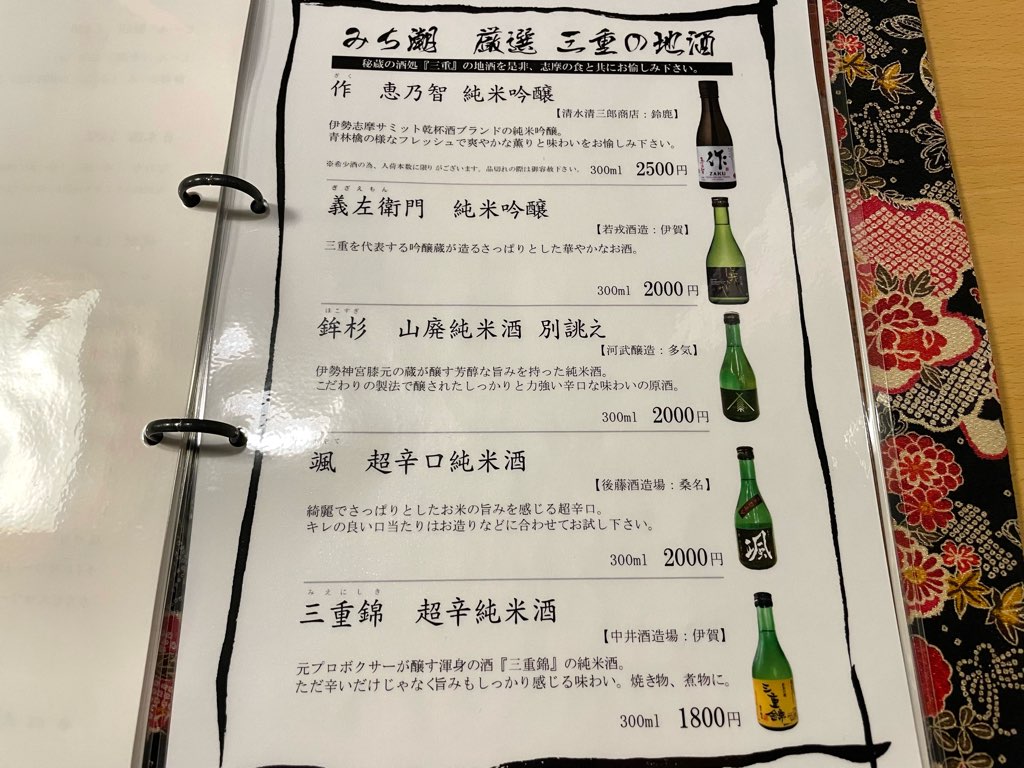 みち潮 厳選 三重の地酒
秘蔵の酒処『三重』の地酒を是非、志摩の食と共にお愉しみ下さい。
ざく
作 恵乃智 純米吟醸
【清水清三郎商店：鈴鹿】
伊勢志摩サミット乾杯酒ブランドの純米吟醸。
青林檎の様なフレッシュで爽やかな薫りと味わいをお愉しみ下さい。
※希少酒の為、入荷本数に限りがございます。品切れの際は御容赦下さい。 300ml 2500円
作
ZAKU
ぎざえもん
義左衛門 純米吟醸
【若戎酒造：伊賀】
三重を代表する吟醸蔵が造るさっぱりとした華やかなお酒。
300ml 2000円
ほこすぎ
鉾杉 山廃純米酒 別誂え
【河武醸造：多気】
伊勢神宮膝元の蔵が醸す芳醇な旨みを持った純米酒。
こだわりの製法で醸されたしっかりと力強い辛口な味わいの原酒。
300ml 2000円
颯 超辛口純米酒
【後藤酒造場：桑名】
綺麗でさっぱりとしたお米の旨みを感じる超辛口。
キレの良い口当たりはお造りなどに合わせてお試し下さい。
300ml 2000円
颯
みえにしき
三重錦 超辛純米酒
【中井酒造場：伊賀】
元プロボクサーが醸す渾身の酒『三重錦』の純米酒。
ただ辛いだけじゃなく旨みもしっかり感じる味わい。焼き物、煮物に。
300ml 1800円
三重錦